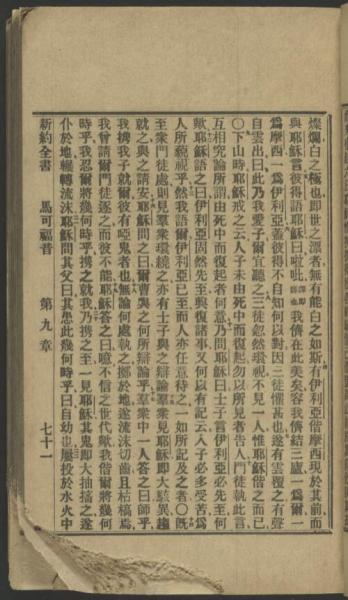 燦爛白之極也卽世之漂者無有能白之如斯有伊利亞偕摩西現於其前而
與耶穌言彼得語耶穌曰啦吡我儕在此美矣容我儕結三廬一爲爾一
爲摩西一爲伊利亞蓋彼得不自知何以對因三徒懼甚也遂有雲覆之有聲
自雲出曰此乃我愛子爾宜聽之三徒忽然環視不見一人惟耶穌偕之而已
〇下山時耶穌戒之云人子未由死中而復起勿以所見者告人門徒執此言
互相究論所謂由死中而復起者何意乃問耶穌曰士子言伊利亞必先至何
歟耶穌語之曰伊利亞固然先至與復諸事又何以有記云人子必多受苦爲
人所藐視乎然我語爾伊利亞已至而人亦任意待之一如所記及之者〇旣
至衆門徒處則見羣衆環繞之亦有士子與之辯論羣衆見耶穌卽大駭異趨
就之與之請安耶穌問之曰爾曹與之何所辯論乎羣衆中一人答之曰師乎
我攜我子就爾彼有啞鬼者也無論何處執之擲於地遂流沫切齒且枯槁焉
我曾請爾門徒逐之而彼不能耶穌答之曰噫不信之世代歟我偕爾將幾何
時乎我忍爾將幾何時乎攜之就我乃攜之至一見耶穌其鬼卽大抽搐之遂
仆於地輾轉流沫耶穌問其父曰其患此幾何時乎曰自幼也屢投於水火中
新約全書 馬可福音 第九章 七十一